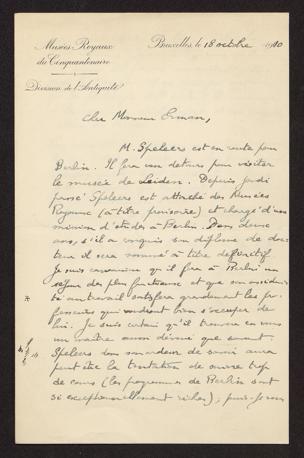 Musées Royaux
du Cinquantenaire
Division de l'Antiquité
Bruxelles, le 18 octobre 1910
Cher Monsieur Erman,
M. Speleers est en route pour
Berlin. Il fera un détour pour visiter
le musée de Leiden. Depuis jeudi
passé Speleers est attaché des Musées
Royaux (à titre provisoire) et chargé d'une
mission d'études à Berlin. Dans deux
ans, s'il a conquis son diplôme de doc
teur il sera nommé à titre définitif
Je suis convaincu qu'il fera à Berlin un
séjour des plus fructueux et que son assidui
té au travail satisfera grandement les pro
fesseurs qui voudront bien s'occuper de
lui. Je suis certain qu'il trouvera en vous
un maître aussi dévoué que savant.
Speleers dans son ardeur de savoir aura
peut être la tentation de suivre trop
de cours (les programmes de Berlin sont
si exceptionnellement riches), puis-je vous